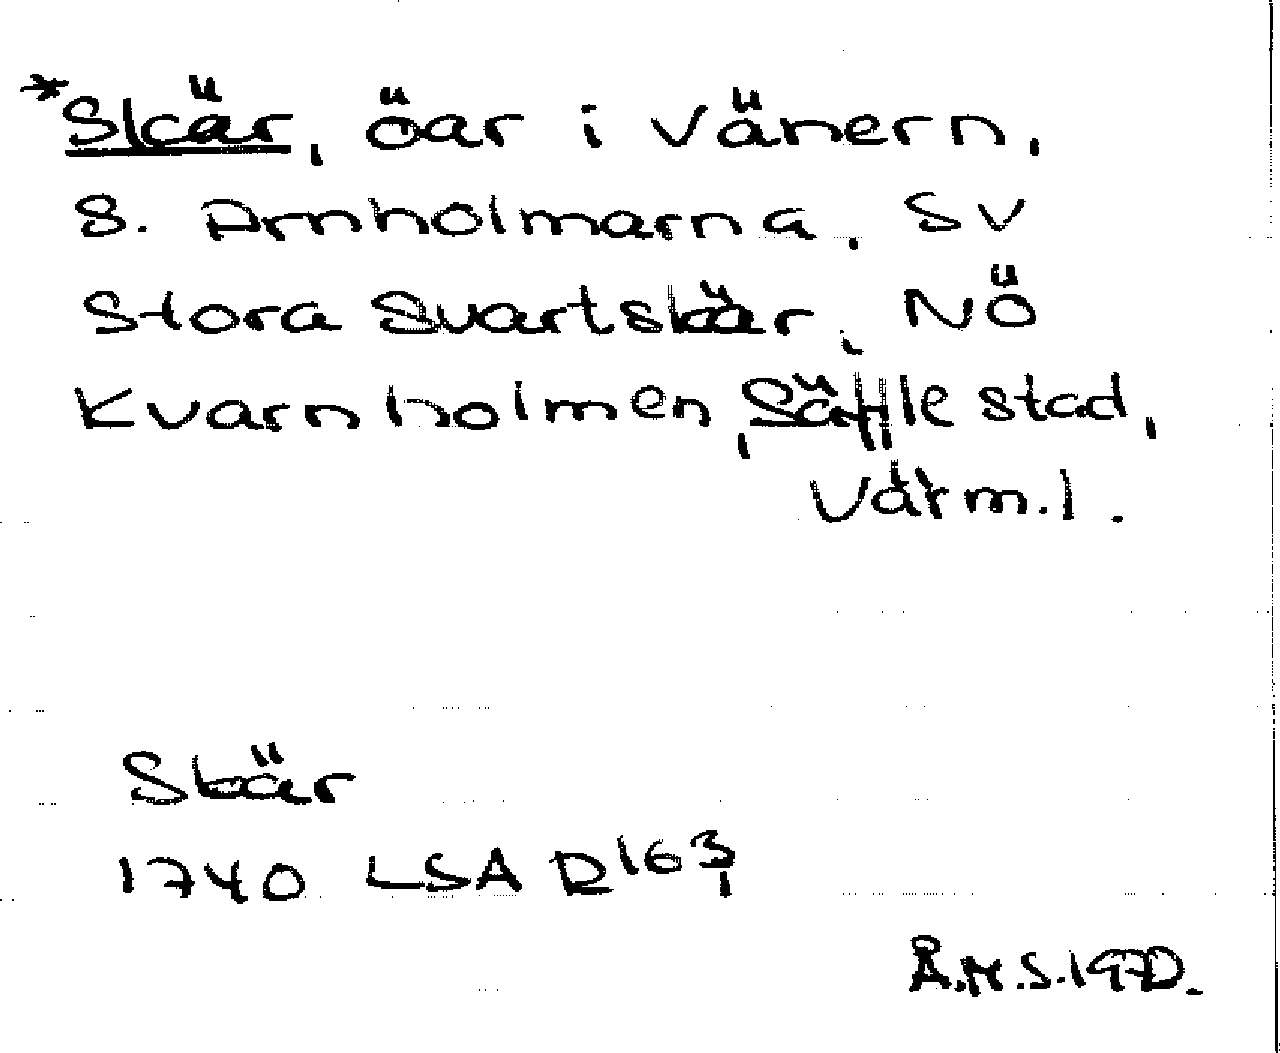 *Skär, öar i Vänern,
S. Arnholmarna, SV
Stora Svartskär, NÖ
Kvarnholmen, Säffle stad,
Värml.
Skär
1740 LSA R 163
Å.H.S. 1970.